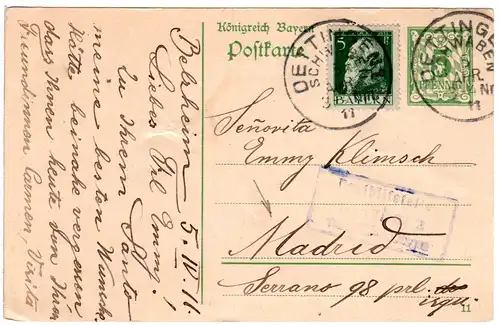 Königreich Bayern
Postkarte
OETTINGEN
SCHWABEN
5 APR.
11
5
BAYERN
OETTINGEN
SCHWABEN
5 APR.
5
PFENNIG
Belzheim 5. IV. 11.
Liebes Frl Emmy!
Zu Ihrem Santo
meine besten Wünsche.
Hätte beinahe vergessen
dass Ihnen heute dem Ihren
Freundinnen Carmen, Visita
Señorita
Emmy Klimsch
Madrid
Serrano 98 prl. do
izqu.
11